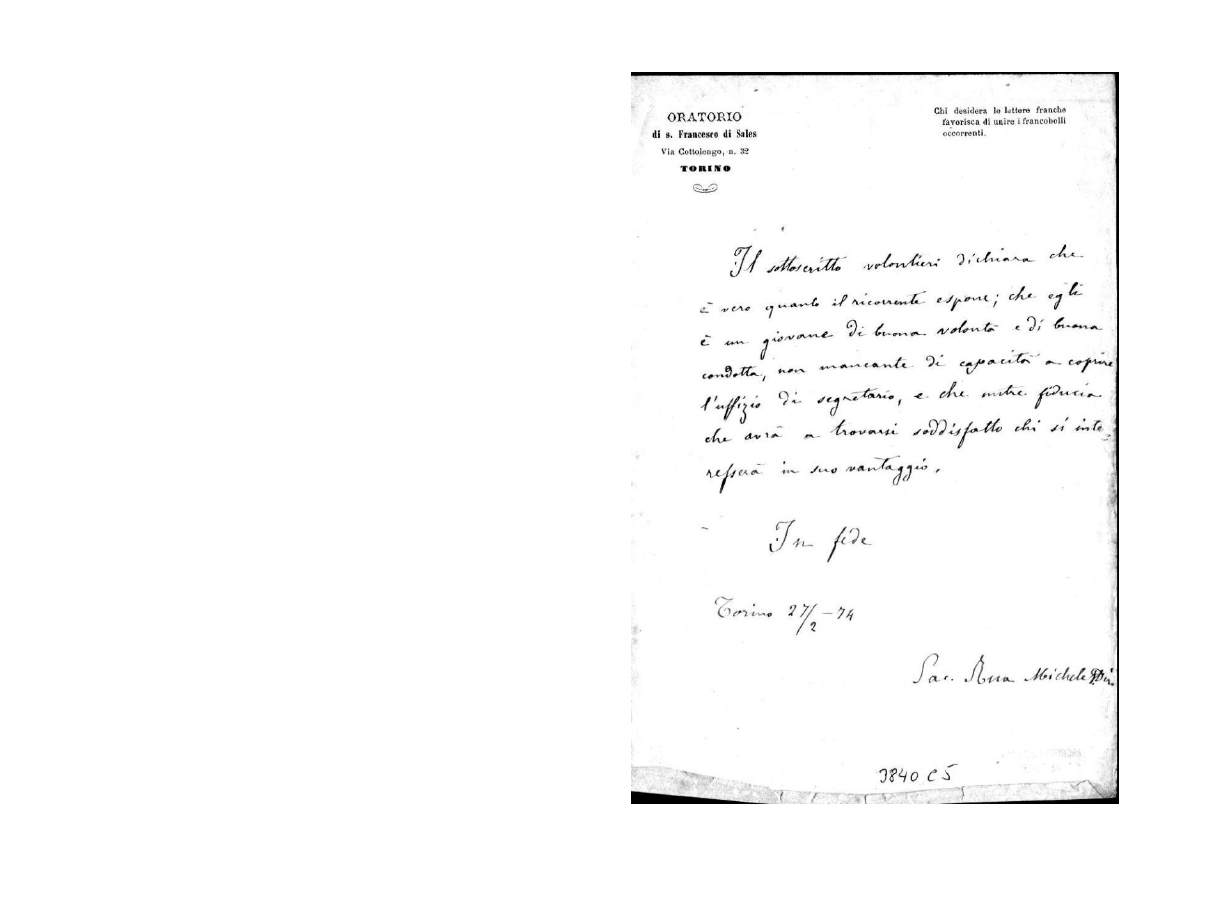 ORATORIO
di s. Francesco di Sales
Via Cottolengo, n. 32
TORINO
Chi desidera le lettere franche
favorisca di unire i francobolli
occorrenti.
Il sottoscritto volontieri dichiara che
è vero quanto il ricorrente espone; che egli
è un giovane di buona volontà e di buona
condotta, non mancante di capacità a coprire
l'uffizio di segretario, e che nutre fiducia
che avrà a trovarsi soddisfatto chi si inte-
resserà in suo vantaggio.
In fede
Torino 27/2 - 74
Sac. Rua Michele
3840 C5